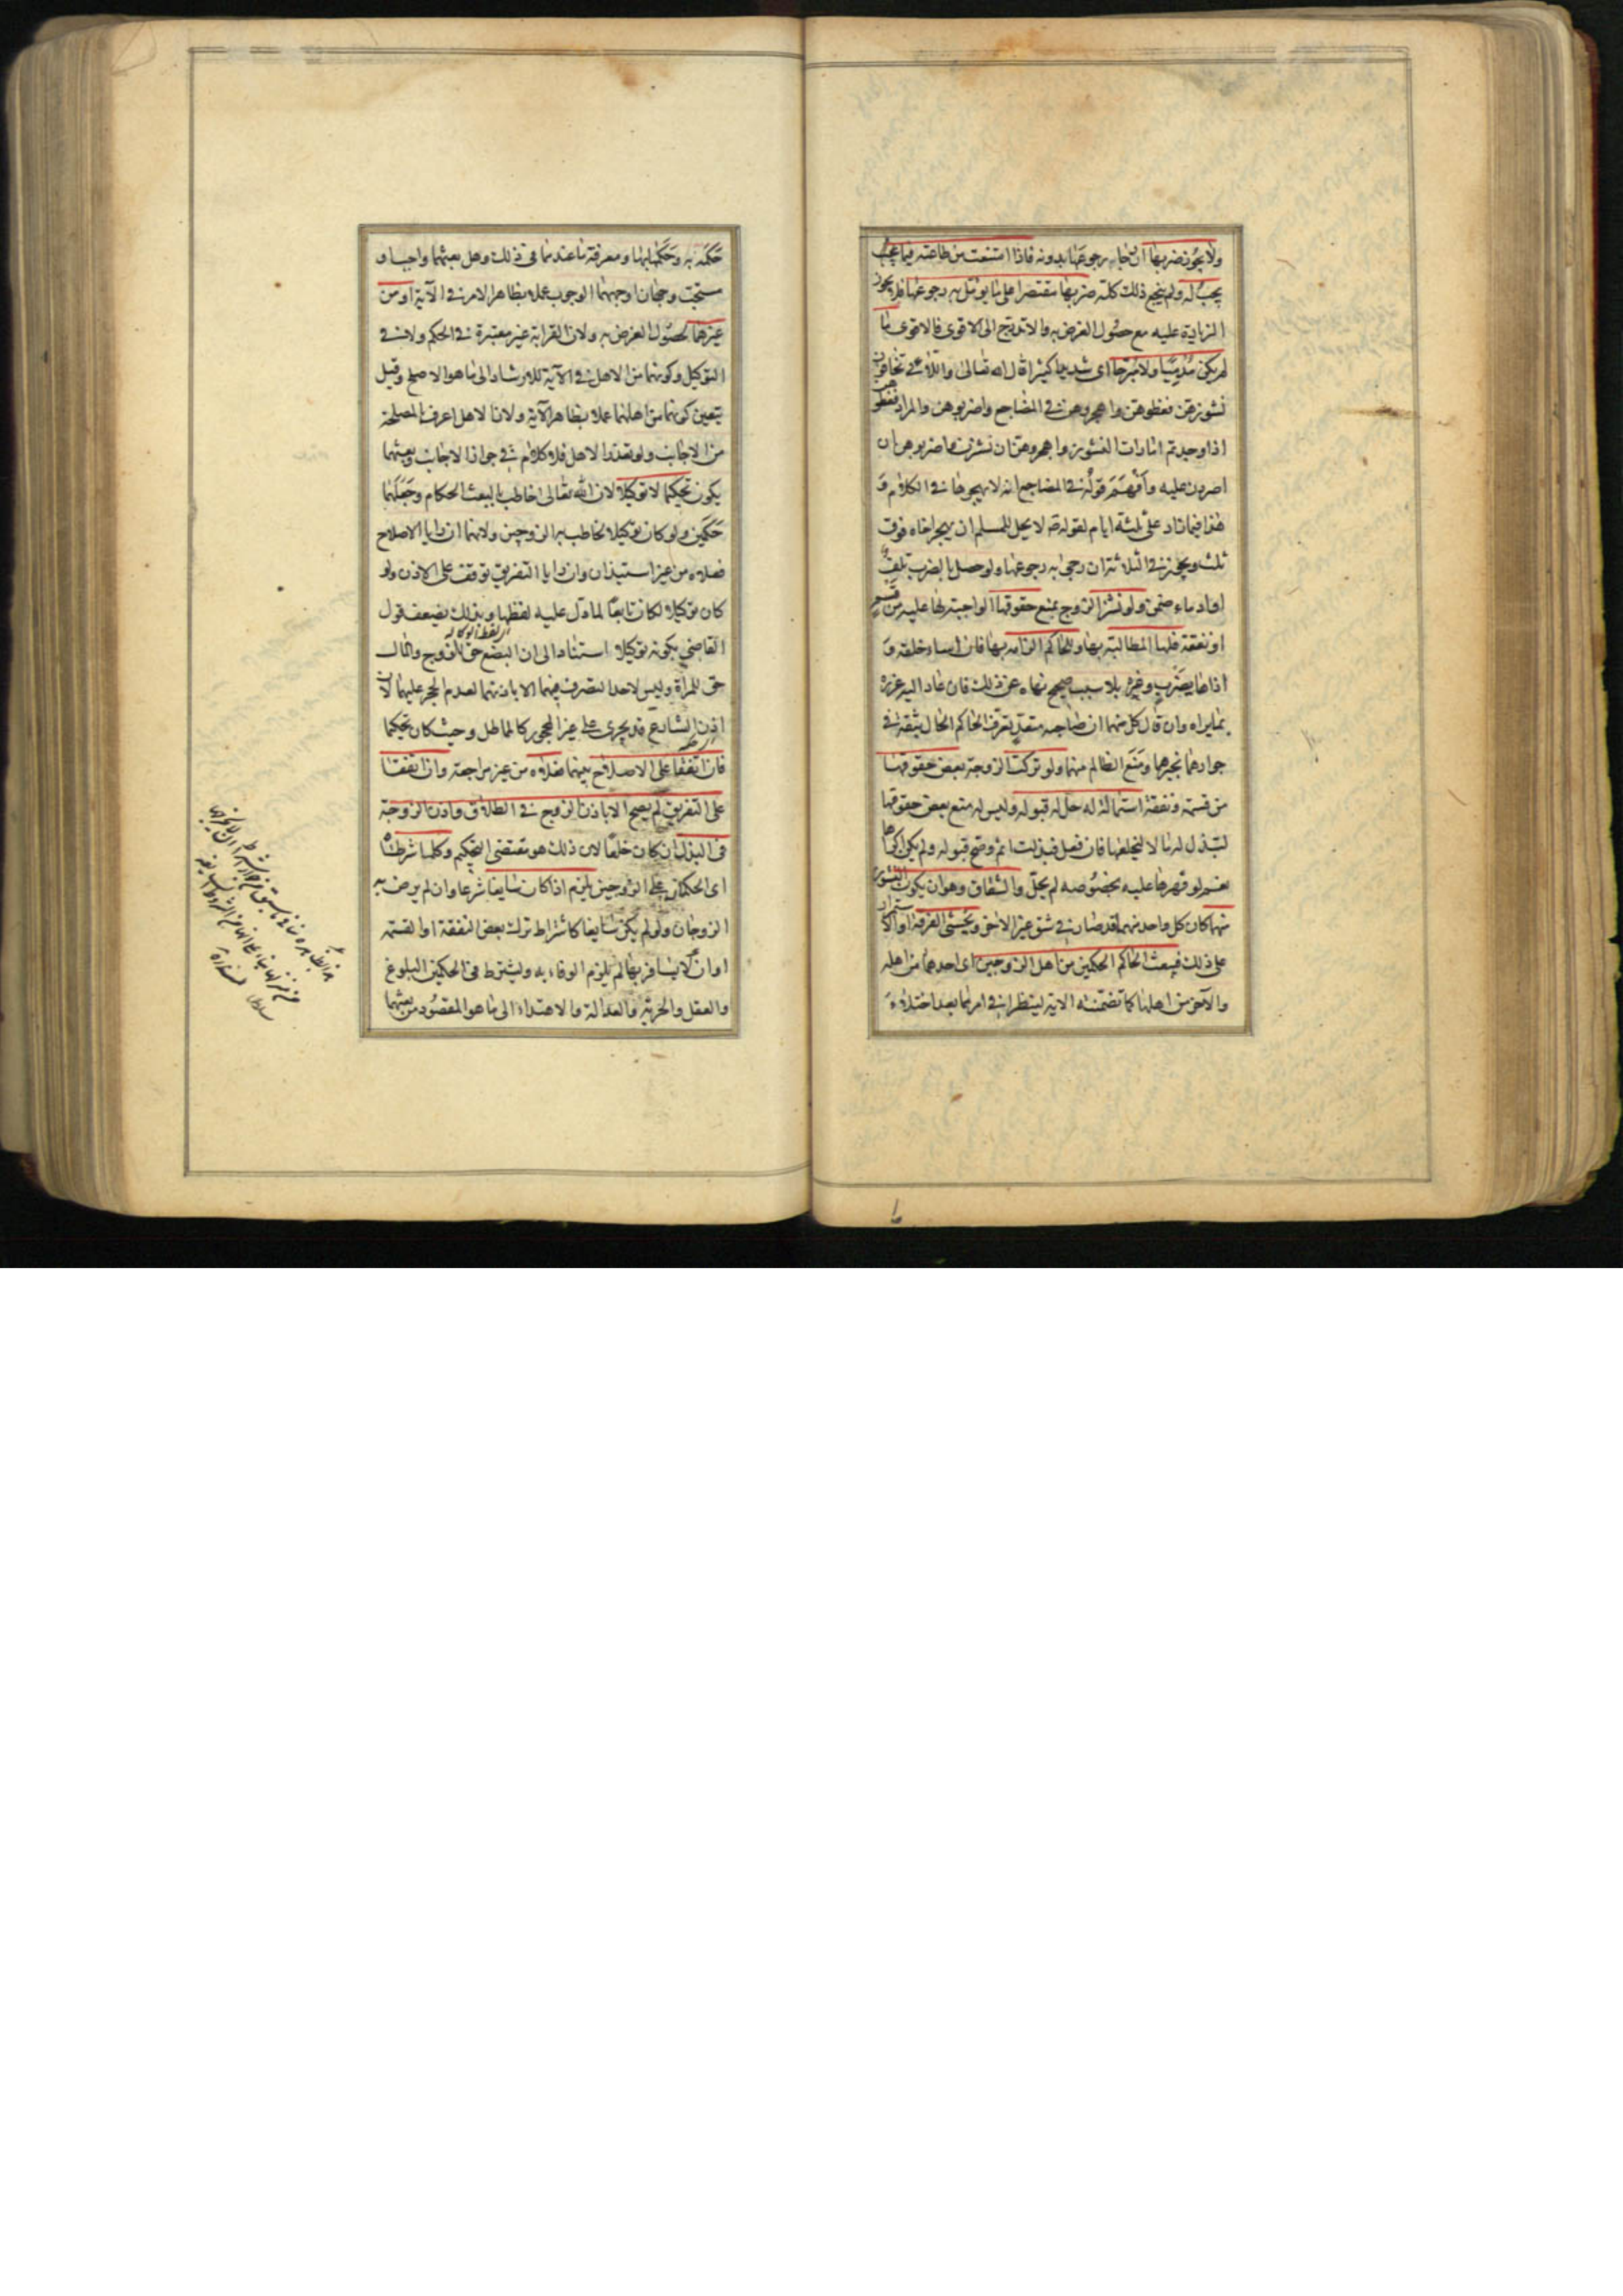 ولا يجوز ضربها ان رجا رجوعها بدونه فاذا امتنعت من طاعته فيما يجب
يجب له ولم ينجع ذلك كله ضربها مقتصرا على ما يؤمل به رجوعها فلا يجوز
الزيادة عليه مع حصول الغرض به والا تدرج الى الاقوى فالاقوى ما
لم يكن مدميا ولا مبرحا اى شديدا كثيرا قال الله تعالى واللاتى تخافون
نشوزهن فعظوهن واهجروهن فى المضاجع واضربوهن والمراد فعظوهن
اذا وجدتم امارات النشوز واهجروهن ان نشزن واضربوهن ان
اصررن عليه وافهم قوله فى المضاجع انه لا يهجرها فى الكلام و
هذا فيما زاد على ثلثة ايام لقوله ص لا يحل للمسلم ان يهجر اخاه فوق
ثلث ويجوز فى الثلاثة ان رجى به رجوعها ولو حصل بالضرب تلف
او ادماء ضمن ولو نشز الزوج بمنع حقوقها الواجبة لها عليه من قسم
او نفقة فلها المطالبة بها وللحاكم الزامه بها فان اساء خلقه و
اذاها بضرب وغيره بلا سبب صحيح نهاه عن ذلك فان عاد اليه عزره
بما يراه وان قال كل منهما ان صاحبه متعد تعرف الحاكم الحال بثقة فى
جوارهما يخبرهما ومنع الظالم منهما ولو تركت الزوجة بعض حقوقها
من قسمة ونفقة استمالة له حل له قبوله وليس له منع بعض حقوقها
لتبذل له مالا ليخلعها فان فعل فبذلت اثم وصح قبوله ولم يكن اكراها
نعم لو قهرها عليه بخصوصه لم يحل والشقاق وهو ان يكون النشوز
منهما كان كل واحد منهما قد صار فى شق غير الاخر ويخشى الفرقة او الاستمرار
على ذلك فيبعث الحاكم الحكمين من اهل الزوجين اى احدهما من اهله
والآخر من اهلها كما تضمنته الاية لينظرا فى امرهما بعد اختلاء
حكمه به وحكمها بها ومعرفة ما عندهما فى ذلك وهل بعثهما واجب او
مستحب وجهان اوجههما الوجوب عملا بظاهر الامر فى الآية او من
غيرهما لحصول الغرض به ولان القرابة غير معتبرة فى الحكم ولا فى
التوكيل وكونهما من الاهل فى الآية للارشاد الى ما هو الاصلح وقيل
يتعين كونهما من اهلهما عملا بظاهر الآية ولان الاهل اعرف بالمصلحة
من الاجانب ولو تعذر الاهل فلا كلام فى جواز الاجانب وبعثهما
يكون تحكيما لا توكيلا لان الله تعالى خاطب بالبعث الحكام وجعلهما
حكمين ولو كان توكيلا لخاطب به الزوجين ولانهما ان رايا الاصلاح
فعلاه من غير استيذان وان رايا التفريق توقف على الاذن ولو
كان توكيلا لكان تابعا لما دل عليه لفظهما وبذلك يضعف قول
القاضى بكونه توكيلا استنادا الى ان البضع حق للزوج والمال
حق للمرأة وليس لاحد التصرف فيهما الا باذنهما لعدم الحجر عليهما لان
اذن الشارع قد يجرى على غير المحجور كالمماطل وحيث كان تحكيما
فان اتفقا على الاصلاح بينهما فعلاه من غير مراجعة وان اتفقا
على التفريق لم يصح الا باذن الزوج فى الطلاق واذن الزوجة
فى البذل ان كان خلعا لان ذلك هو مقتضى التحكيم وكلما شرطاه
اى الحكمان على الزوجين يلزم اذا كان سايغا شرعا وان لم يرض به
الزوجان ولو لم يكن سايغا كاشتراط ترك بعض النفقة او القسمة
او ان لا يسافر بها لم يلزم الوفاء به ويشترط فى الحكمين البلوغ
والعقل والحرية والعدالة والاهتداء الى ما هو المقصود من بعثهما